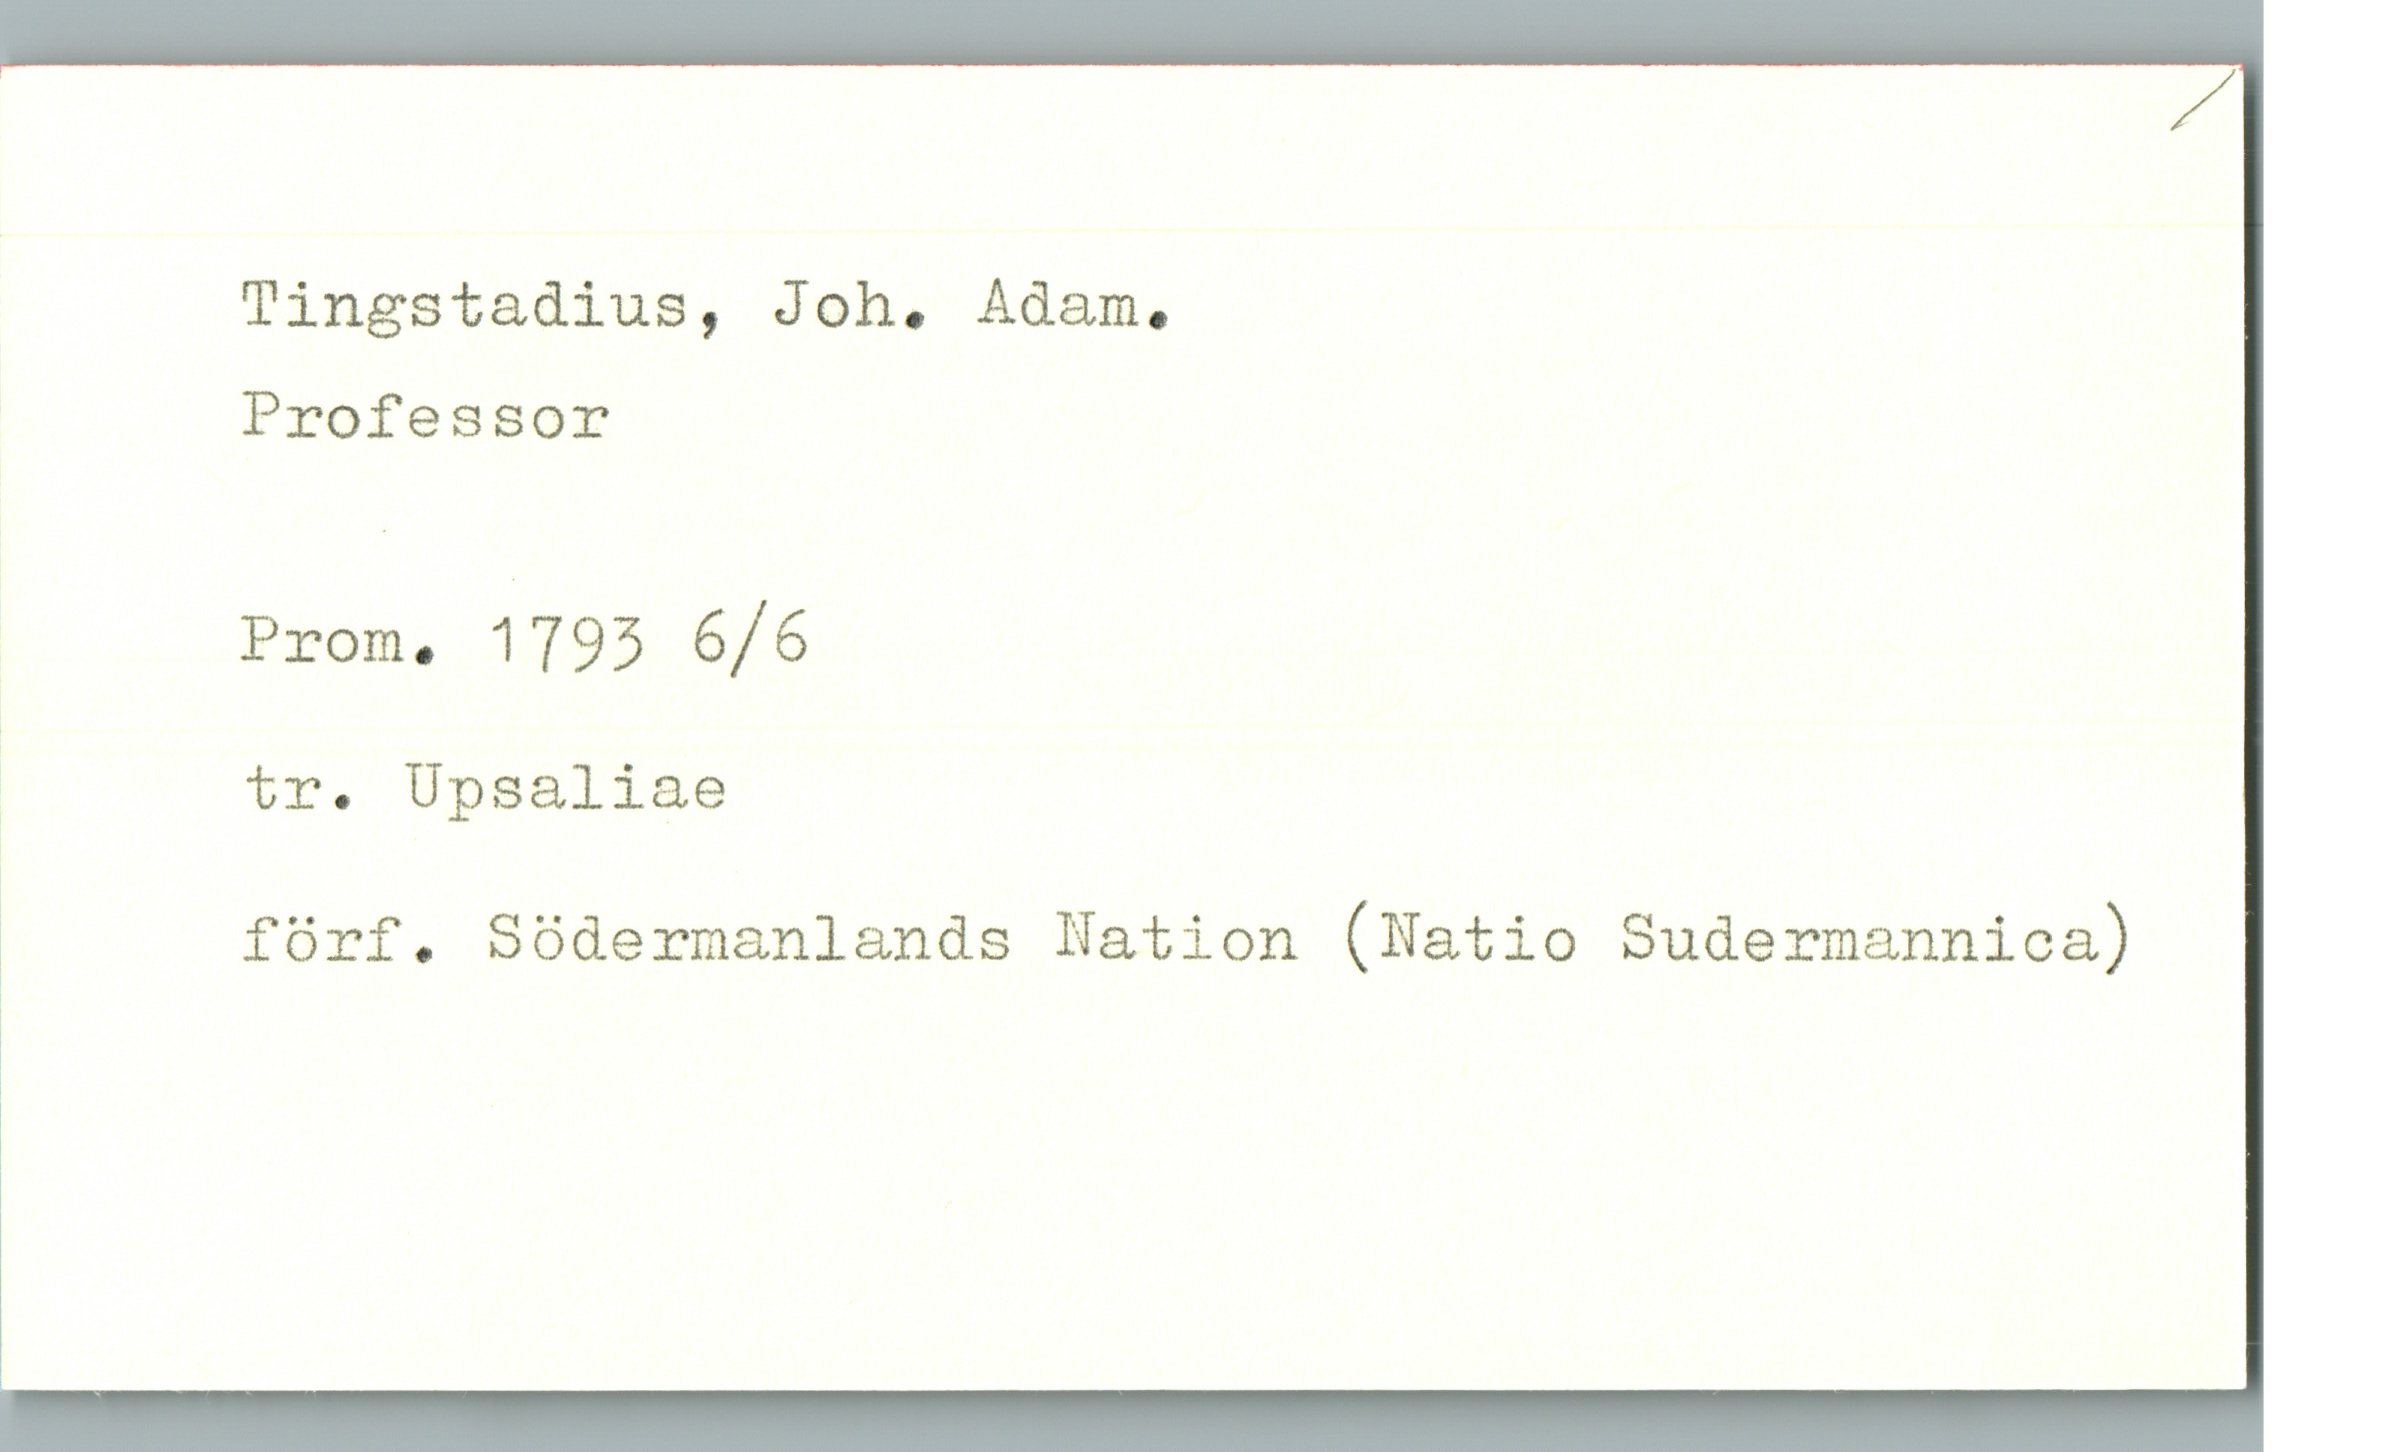 Tingstadius, Joh. Adam.
Professor
Prom. 1793 6/6
tr. Upsaliae
förf. Södermanlands Nation (Natio Sudermannica)